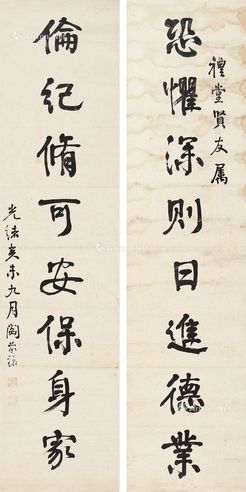 禮堂賢友属
恐懼深則日進德業
倫紀脩可安保身家
光緒癸未九月閻敬銘